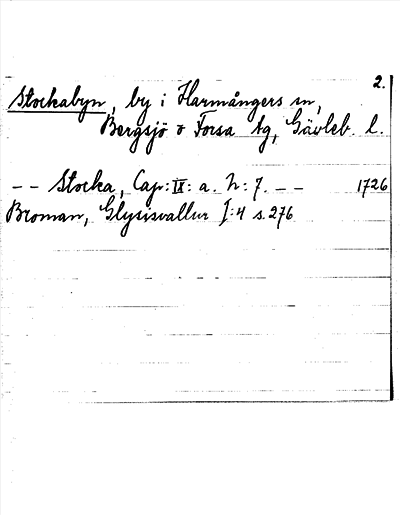 2.
Stockabyn, by i Harmångers sn,
Bergsjö o Forsa tg, Gävleb. l.
-- Stocka, Cap: IX: a. N: 7. -- 1726
Broman, Glysisvallur I:4 s. 276